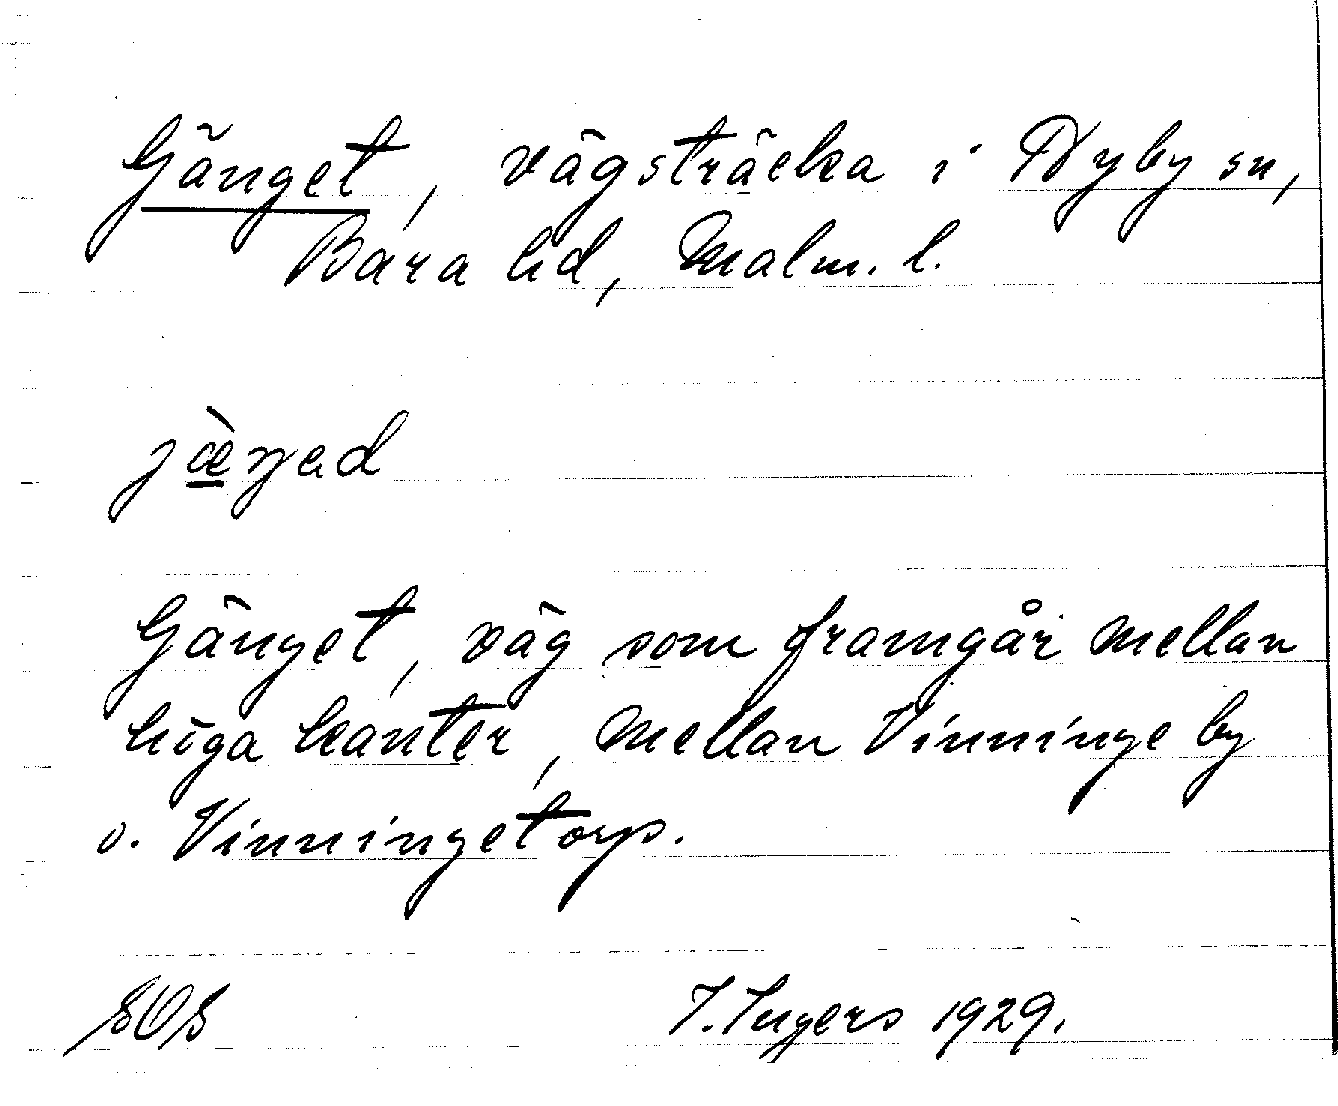 Gänget, vägsträcka i Dyby sn,
Bara hd, Malm. l.
jæ̀ŋəd
Gänget, väg som framgår mellan
höga kanter, mellan Vinninge by
o. Vinningetorp.
I. Ingers 1929.